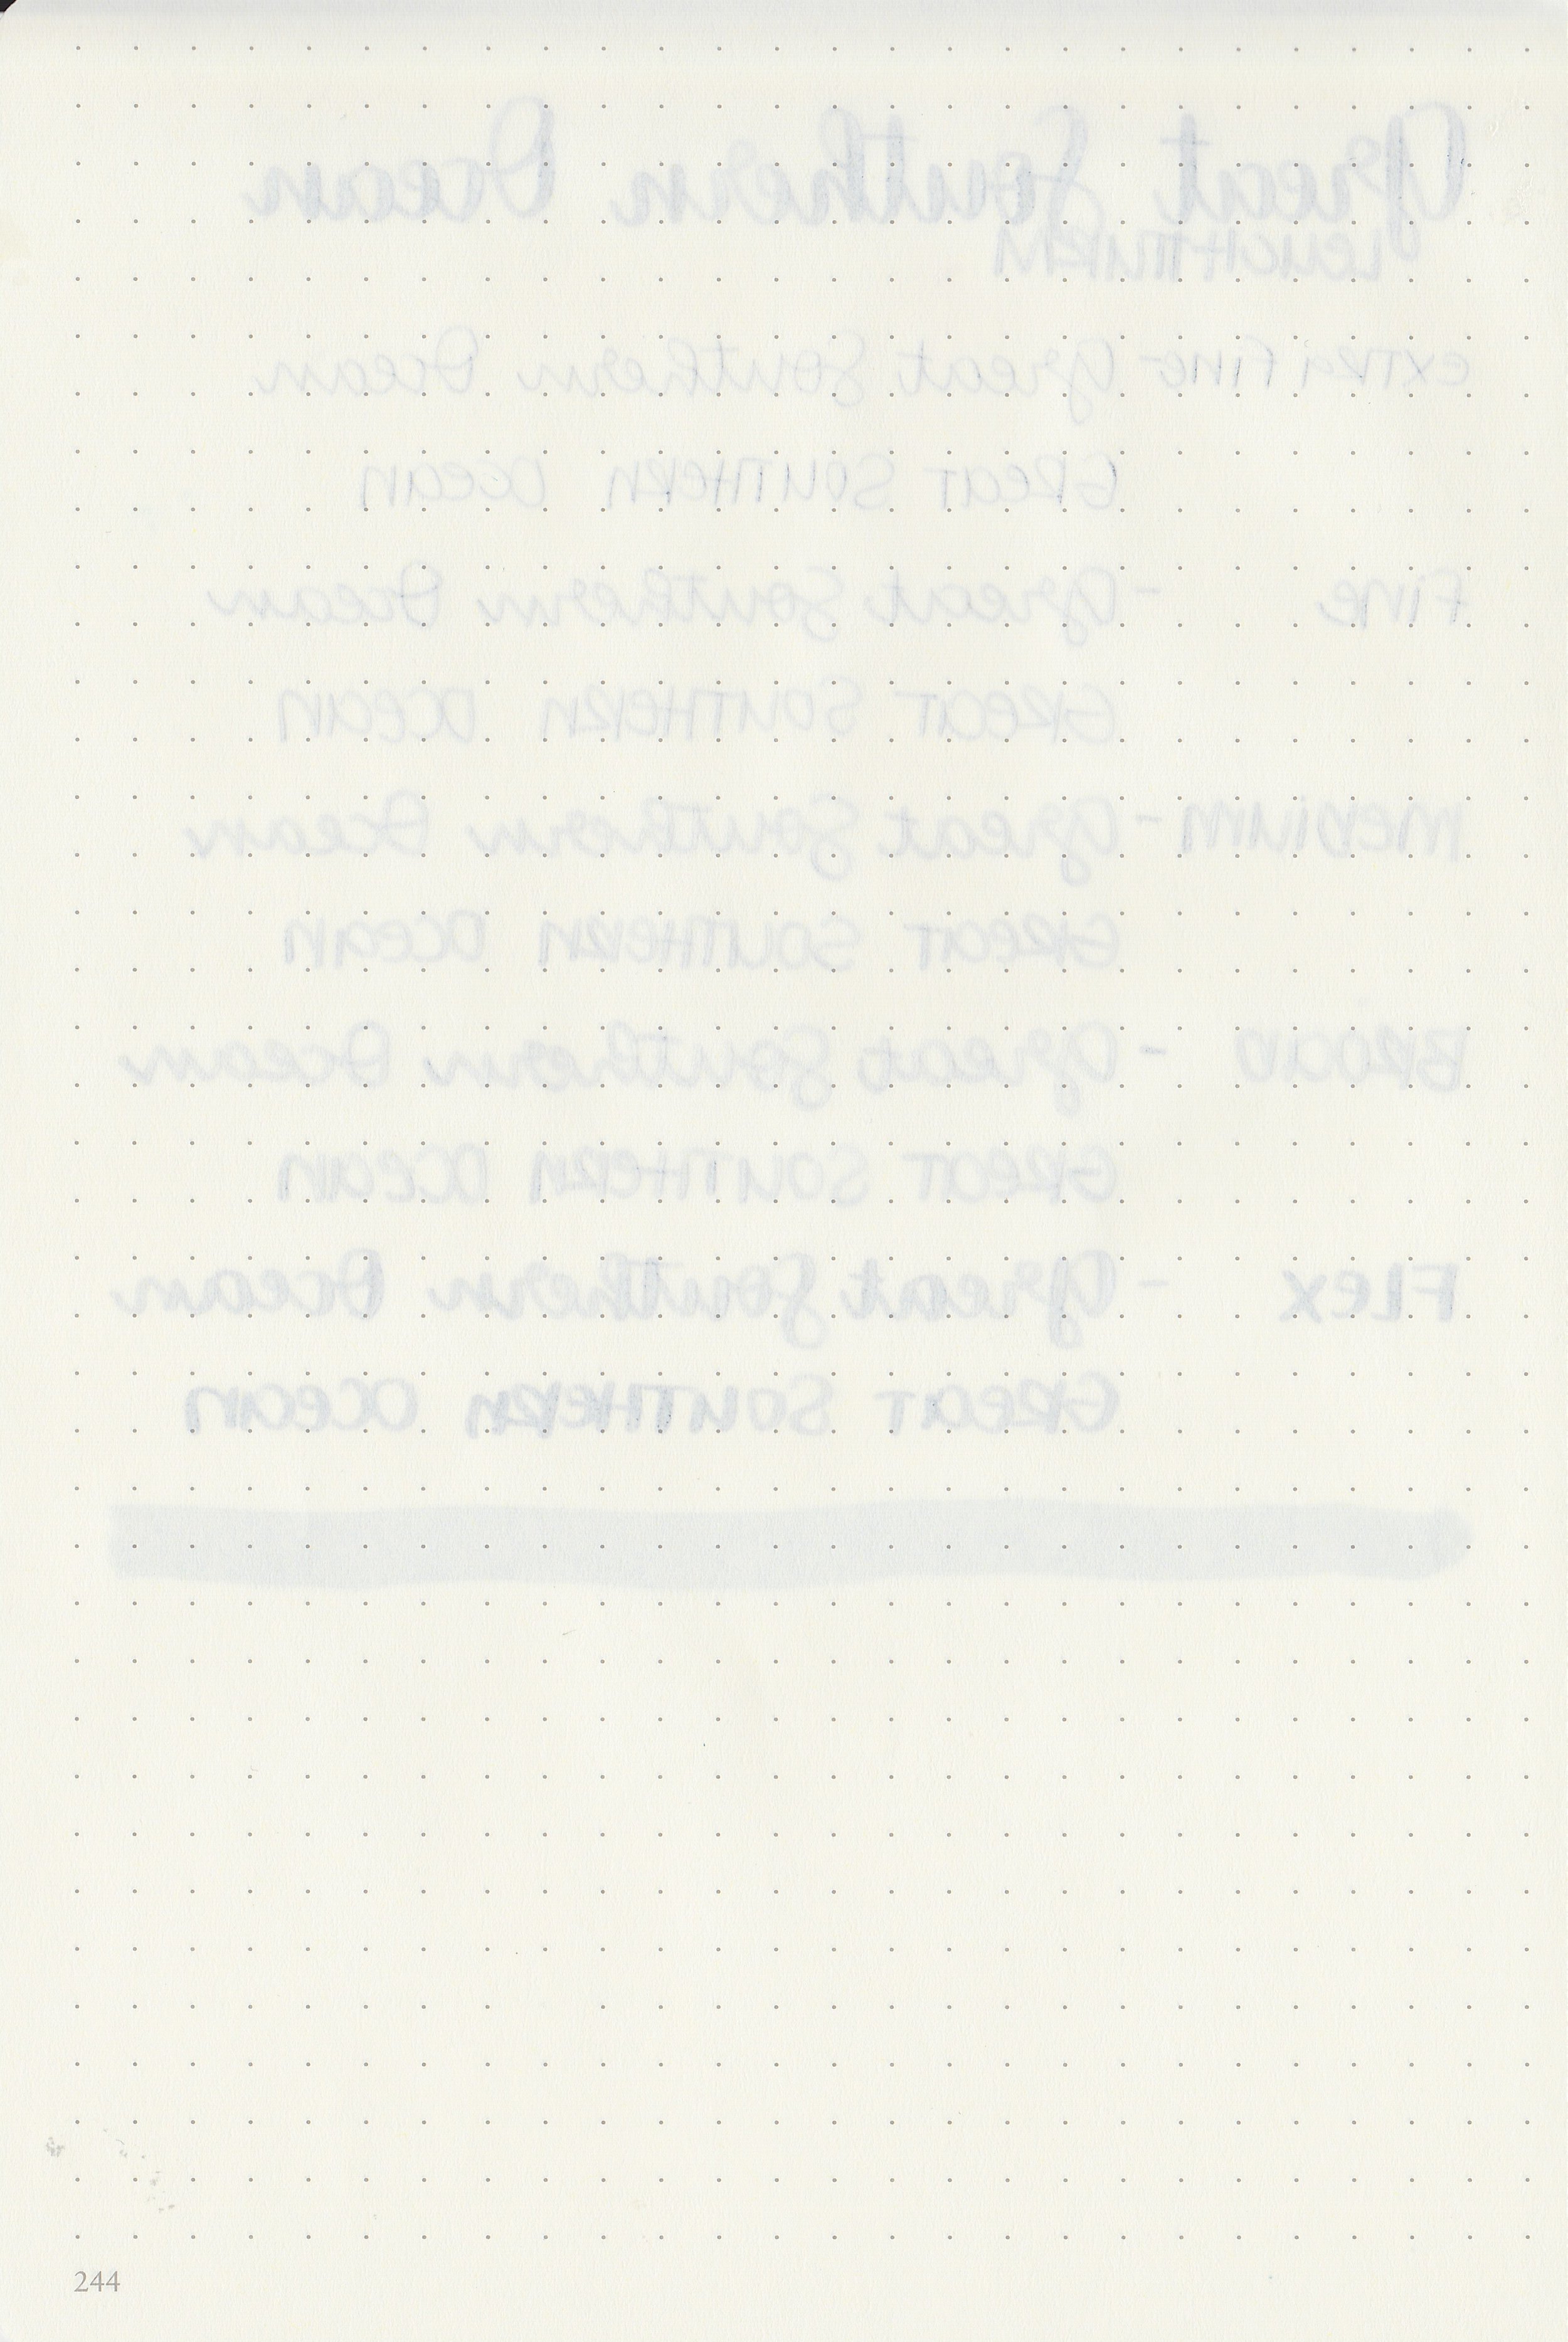 Great Southern Ocean
LEUCHTTURM
EXTRA FINE - Great Southern Ocean
GREAT SOUTHERN OCEAN
FINE - Great Southern Ocean
GREAT SOUTHERN OCEAN
MEDIUM - Great Southern Ocean
GREAT SOUTHERN OCEAN
BROAD - Great Southern Ocean
GREAT SOUTHERN OCEAN
FLEX - Great Southern Ocean
GREAT SOUTHERN OCEAN
244